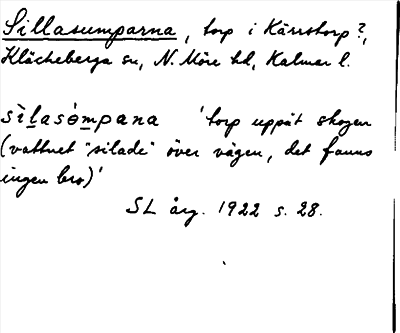 Sillasumparna, torp i Kärrstorp?,
Kläckeberga sn, N. Möre hd, Kalmar l.
sìlasòmpana 'torp uppåt skogen
(vattnet "silade" över vägen, det fanns
ingen bro)'
SL årg. 1922 s. 28.